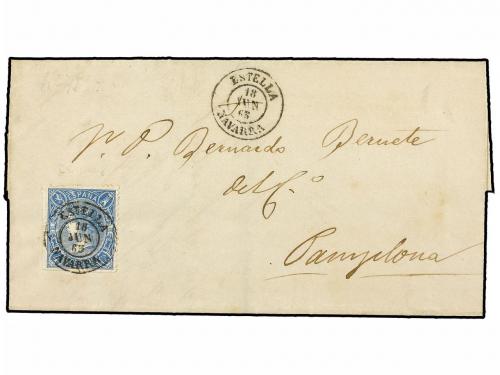 ESTELLA
18
JUN
65
NAVARRA
Bernardo Bernete
del C.º
Pamplona
ESPAÑA
ESTELLA
18
JUN
65
NAVARRA